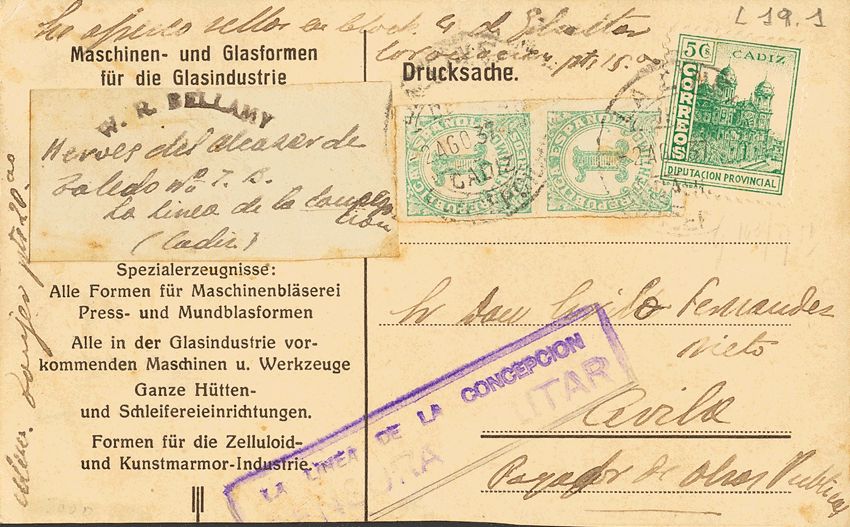 L 19.1
en block 4 Gibraltar
Maschinen- und Glasformen
für die Glasindustrie
Drucksache.
W. R. BELLAMY
Heroes del Alcazar de
Toledo Nº 7. 2.
La Linea de la Concep
cion
(Cadiz)
ESPAÑA
1
2 AGO 37
CADIZ
ESPAÑA
1
5 Cs.
CADIZ
CORREOS
DIPUTACION PROVINCIAL
Spezialerzeugnisse:
Alle Formen für Maschinenbläserei
Press- und Mundblasformen
Alle in der Glasindustrie vor-
kommenden Maschinen u. Werkzeuge
Ganze Hütten-
und Schleifereieinrichtungen.
Formen für die Zelluloid-
und Kunstmarmor-Industrie.
Sr Don Fernandez
Nieto
Avila
Pagador de Obras Publicas
LA LINEA DE LA CONCEPCION
CENSURA MILITAR